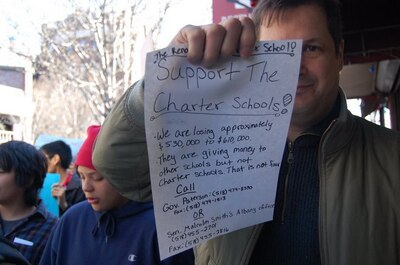 The Reno School!
Support The
Charter Schools!
- We are losing approximately
$530,000 to $610,000.
- They are giving money to
other schools but not
charter schools. That is not fair
Call
Gov. Paterson: (518) 474-8390
Fax: (518) 474-1513
OR
Sen. Malcolm Smith's Albany office
(518) 455-2701
Fax: (518) 455-2816